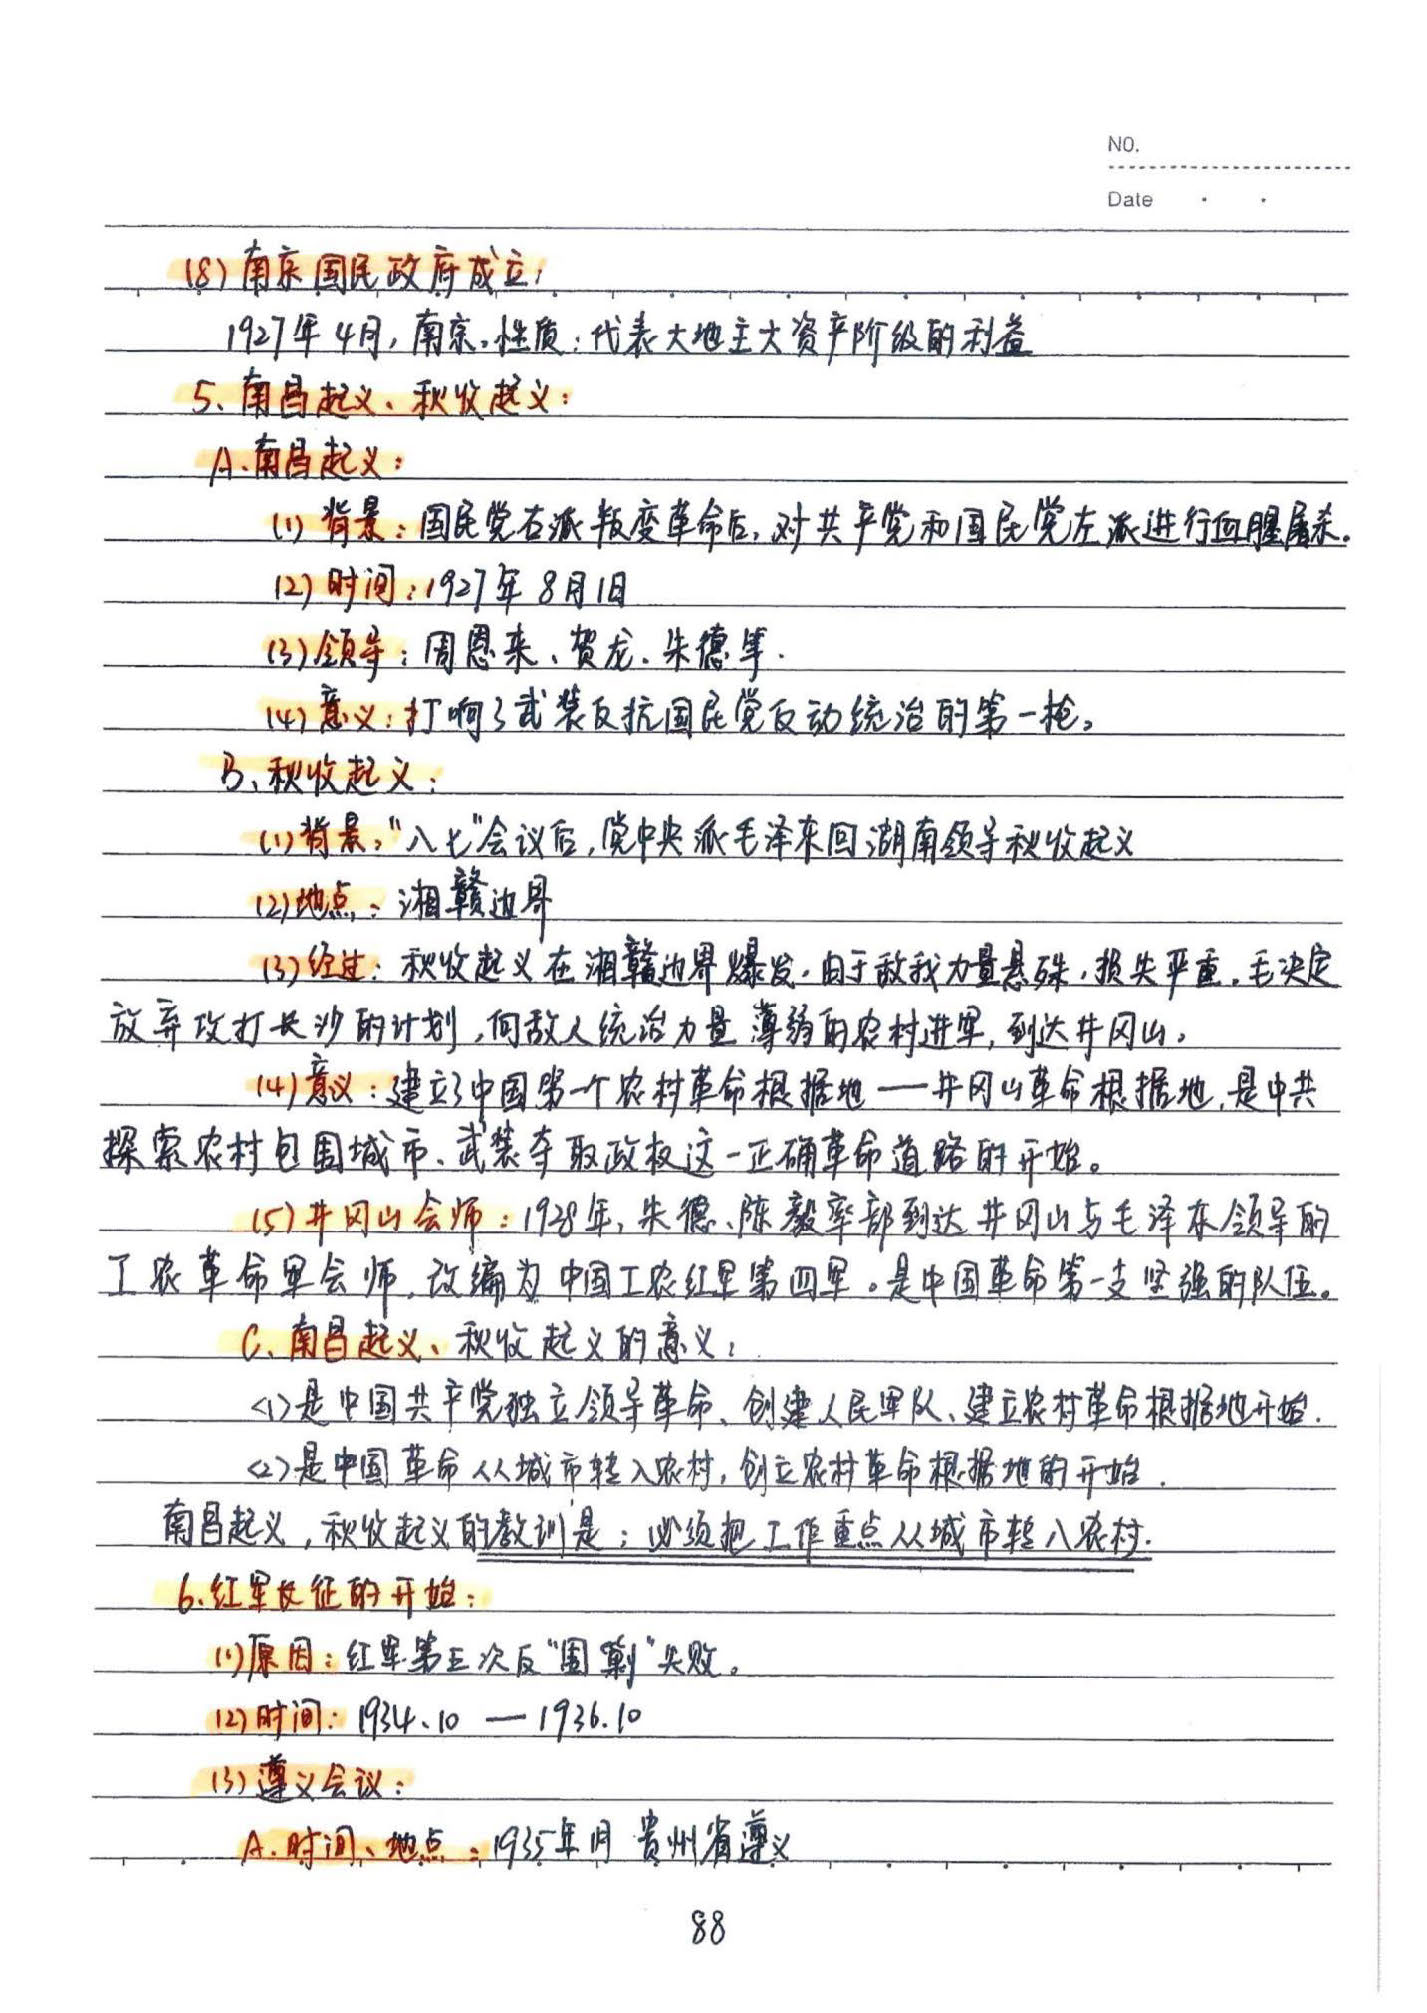 NO.
Date
(8) 南京国民政府成立：
1927年4月，南京。性质：代表大地主大资产阶级的利益
5、南昌起义、秋收起义：
A.南昌起义：
(1) 背景：国民党右派叛变革命后，对共产党和国民党左派进行血腥屠杀。
(2) 时间：1927年8月1日
(3) 领导：周恩来、贺龙、朱德等.
(4) 意义：打响了武装反抗国民党反动统治的第一枪。
B、秋收起义：
(1)背景："八七"会议后，党中央派毛泽东回湖南领导秋收起义
(2)地点：湘赣边界
(3)经过：秋收起义在湘赣边界爆发，由于敌我力量悬殊，损失严重。毛决定
放弃攻打长沙的计划，向敌人统治力量薄弱的农村进军，到达井冈山。
(4)意义：建立了中国第一个农村革命根据地——井冈山革命根据地，是中共
探索农村包围城市、武装夺取政权这一正确革命道路的开始。
(5)井冈山会师：1928年，朱德、陈毅率部到达井冈山与毛泽东领导的
工农革命军会师，改编为中国工农红军第四军。是中国革命第一支坚强的队伍。
C、南昌起义、秋收起义的意义：
<1>是中国共产党独立领导革命、创建人民军队、建立农村革命根据地开始.
<2>是中国革命从城市转入农村，创立农村革命根据地的开始.
南昌起义，秋收起义的教训是：必须把工作重点从城市转入农村.
6.红军长征的开始：
(1)原因：红军第五次反"围剿"失败。
(2)时间：1934.10 — 1936.10
(3)遵义会议：
A.时间、地点：1935年1月 贵州省遵义
88